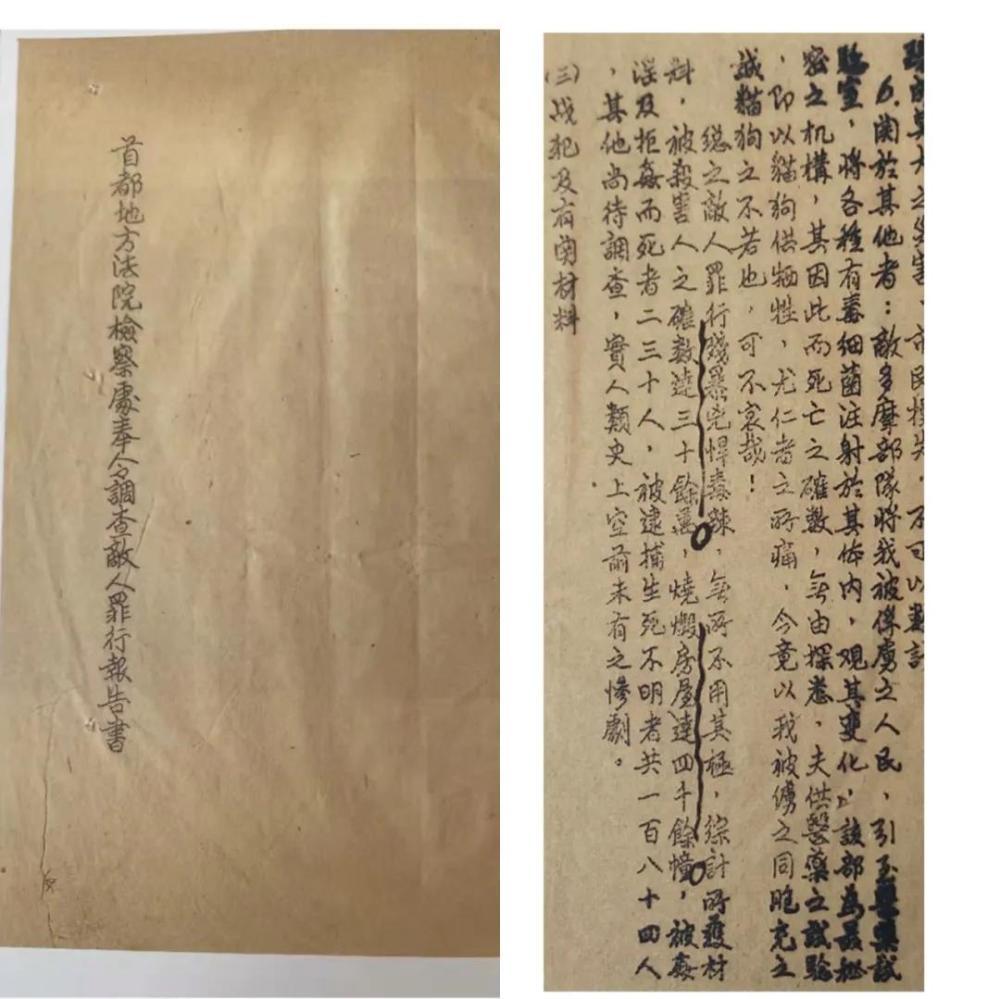 首都地方法院檢察處奉令調查敵人罪行報告書
之災害、市民損失，不可以數計
6.關於其他者：敵多摩部隊將我被俘虜之人民，引至醫藥試
驗室，將各種有毒细菌注射於其体内，观其变化，該部為最秘
密之机構，其因此而死亡之確数，無由探悉，夫供醫藥之試驗
，即以貓狗供牺牲，尤仁者之所痛，今竟以我被虜之同胞充之
，誠貓狗之不若也，可不哀哉！
総之敵人罪行殘暴兇悍毒辣，無所不用其極，綜計所獲材
料，被殺害人之確数達三十餘萬，燒燬房屋達四千餘幢，被姦
淫及拒姦而死者二三十人，被逮捕生死不明者共一百八十四人
，其他尚待調查，實人類史上空前未有之慘劇。
(三)战犯及有関材料